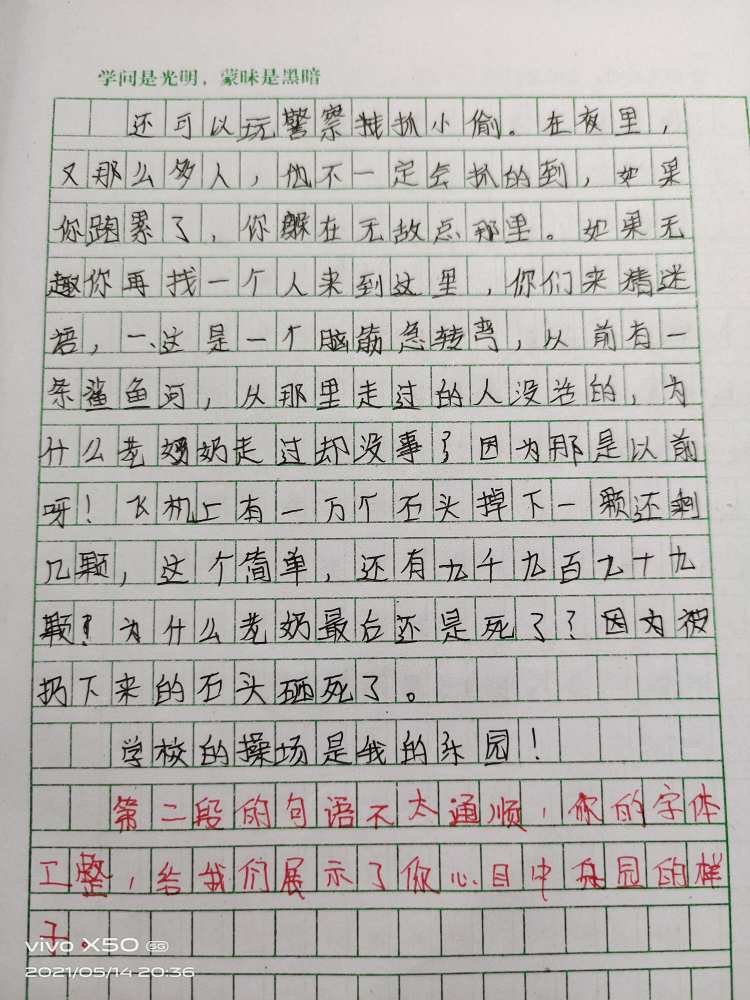 学问是光明，蒙昧是黑暗
还可以玩警察抓小偷。在夜里，
又那么多人，他不一定会抓的到，如果
你跑累了，你躲在无故点那里。如果无
趣你再找一个人来到这里，你们来猜迷
语，一、这是一个脑筋急转弯，从前有一
条鲨鱼河，从那里走过的人没活的，为
什么老奶奶走过却没事了因为那是以前
呀！飞机上有一万个石头掉下一颗还剩
几颗，这个简单，还有九千九百九十九
颗？为什么老奶最后还是死了？因为被
扔下来的石头砸死了。
学校的操场是我的乐园！
第二段的句语不太通顺，你的字体
工整，给我们展示了你心目中乐园的样
子。
vivo X50 5G
2021/05/14 20:36